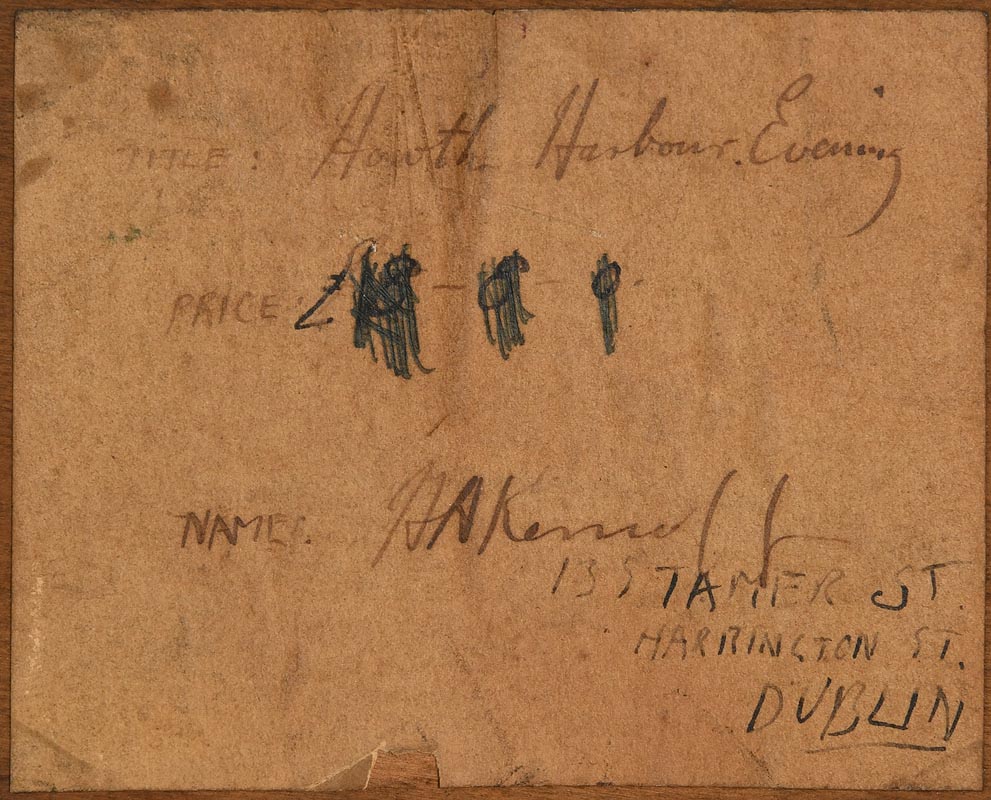 TITLE: Howth Harbour. Evening
PRICE: £
NAME: HAKernoff
13 STAMER ST.
HARRINGTON ST.
DUBLIN